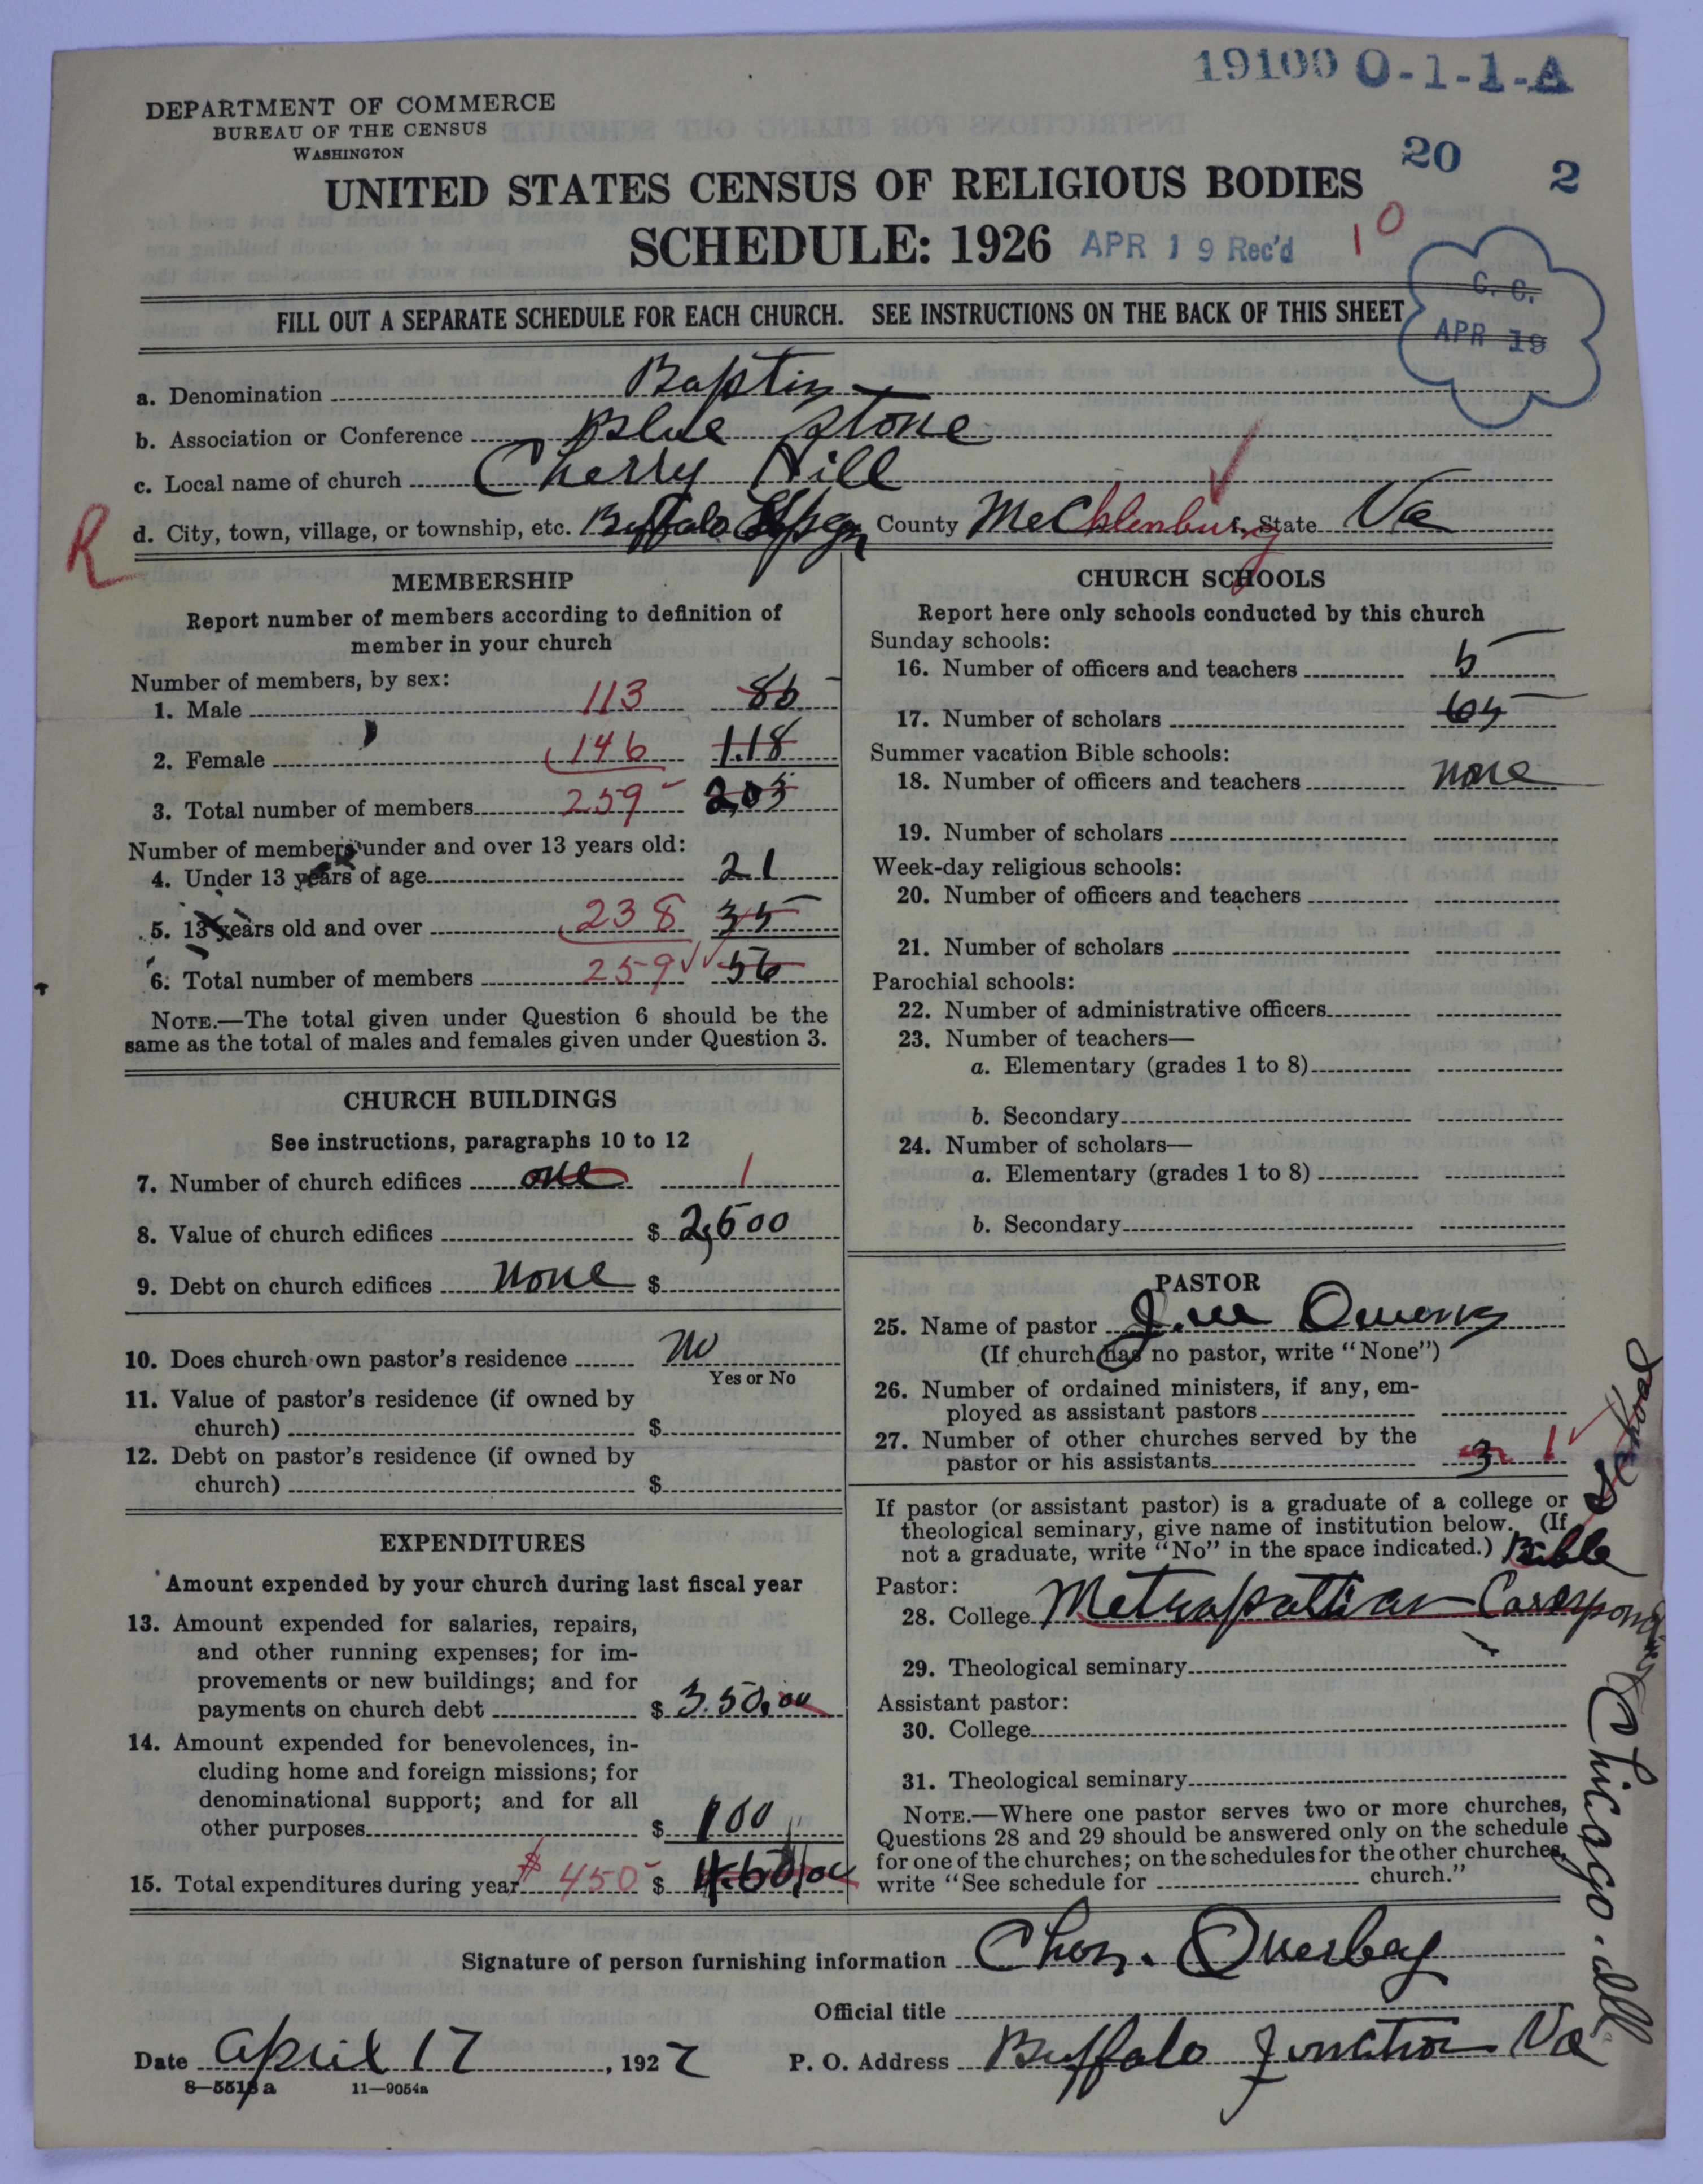 19100 O-1-1-A
DEPARTMENT OF COMMERCE
BUREAU OF THE CENSUS
WASHINGTON
20 2
UNITED STATES CENSUS OF RELIGIOUS BODIES
SCHEDULE: 1926 APR 19 Rec'd 10
G. C.
APR 19
FILL OUT A SEPARATE SCHEDULE FOR EACH CHURCH. SEE INSTRUCTIONS ON THE BACK OF THIS SHEET
a. Denomination Baptist
b. Association or Conference Blue Stone
c. Local name of church Cherry Hill
R d. City, town, village, or township, etc. Buffalo County Mecklenburg State Va
MEMBERSHIP
Report number of members according to definition of
member in your church
Number of members, by sex:
1. Male 113 85
2. Female 146 118
3. Total number of members 259 203
Number of members under and over 13 years old:
4. Under 13 years of age 21
5. 13 years old and over 238 35
6. Total number of members 259 56
NOTE.—The total given under Question 6 should be the
same as the total of males and females given under Question 3.
CHURCH BUILDINGS
See instructions, paragraphs 10 to 12
7. Number of church edifices one 1
8. Value of church edifices $ 2,500
9. Debt on church edifices none $
10. Does church own pastor's residence no
Yes or No
11. Value of pastor's residence (if owned by
church) $
12. Debt on pastor's residence (if owned by
church) $
EXPENDITURES
Amount expended by your church during last fiscal year
13. Amount expended for salaries, repairs,
and other running expenses; for im-
provements or new buildings; and for
payments on church debt $ 350.00
14. Amount expended for benevolences, in-
cluding home and foreign missions; for
denominational support; and for all
other purposes $ 100
15. Total expenditures during year $450 $ 450.00
CHURCH SCHOOLS
Report here only schools conducted by this church
Sunday schools:
16. Number of officers and teachers 5
17. Number of scholars 65
Summer vacation Bible schools:
18. Number of officers and teachers none
19. Number of scholars
Week-day religious schools:
20. Number of officers and teachers
21. Number of scholars
Parochial schools:
22. Number of administrative officers
23. Number of teachers—
a. Elementary (grades 1 to 8)
b. Secondary
24. Number of scholars—
a. Elementary (grades 1 to 8)
b. Secondary
PASTOR
25. Name of pastor J. W. Owens
(If church has no pastor, write "None")
26. Number of ordained ministers, if any, em-
ployed as assistant pastors
27. Number of other churches served by the
pastor or his assistants 3 1
If pastor (or assistant pastor) is a graduate of a college or
theological seminary, give name of institution below. (If
not a graduate, write "No" in the space indicated.) Bible
Pastor:
28. College Metrapolitian Corresponding
Chicago. Ill.
29. Theological seminary
Assistant pastor:
30. College
31. Theological seminary
NOTE.—Where one pastor serves two or more churches,
Questions 28 and 29 should be answered only on the schedule
for one of the churches; on the schedules for the other churches,
write "See schedule for church."
Signature of person furnishing information Chas. Overbey
Official title
Date April 17, 1927 P. O. Address Buffalo Junction Va
8—5513 a 11—9054a